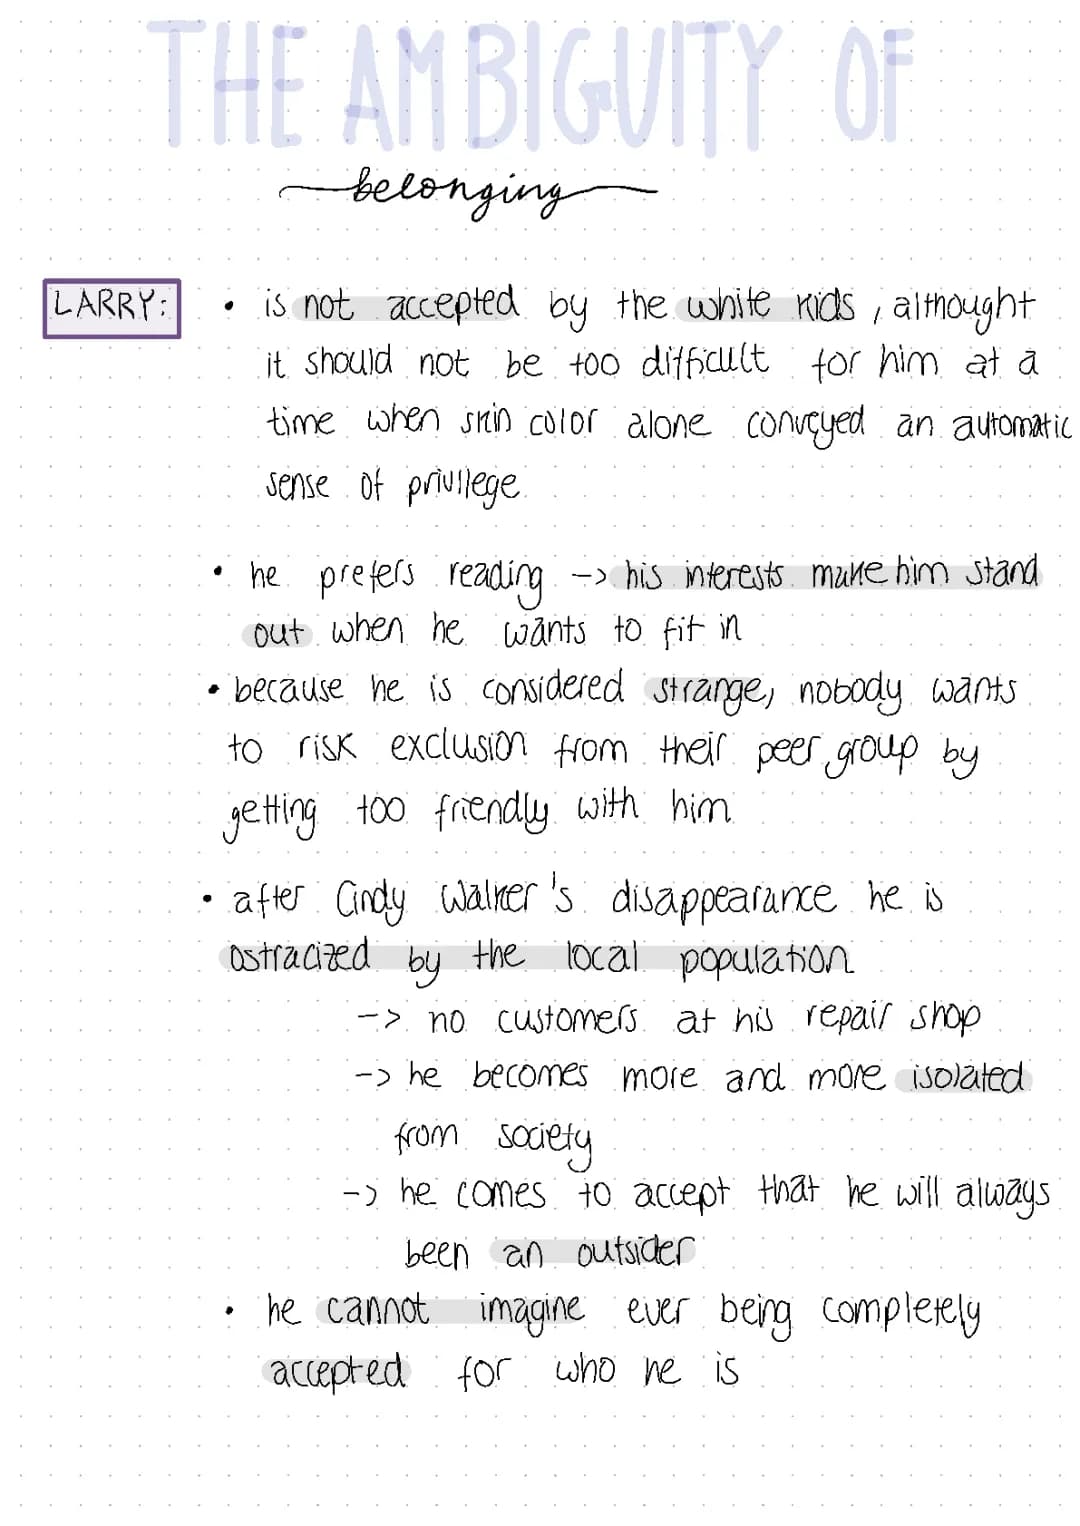 THE AMBIGUITY OF
belonging
LARRY: • is not accepted by the white kids, althought
it should not be too difficult for him at a
time when skin color alone conveyed an automatic
sense of privilege.
• he prefers reading -> his interests make him stand
out when he wants to fit in
• because he is considered strange, nobody wants
to risk exclusion from their peer group by
getting too friendly with him
• after Cindy Walker's disappearance he is
ostracized by the local population
-> no customers at his repair shop
-> he becomes more and more isolated
from society
-> he comes to accept that he will always
been an outsider
• he cannot imagine ever being completely
accepted for who he is